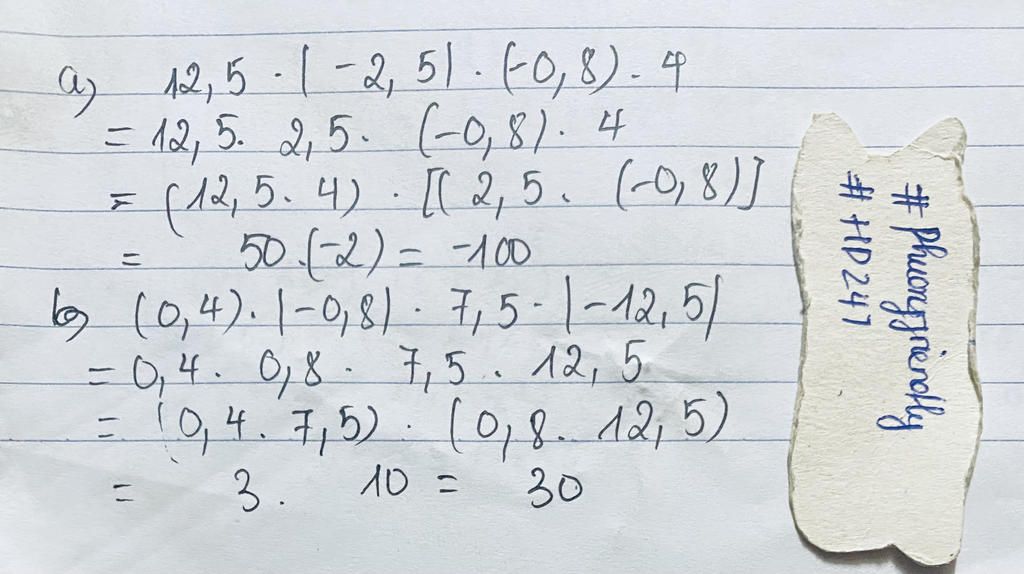 a) 12,5 . |-2,5| . (-0,8) . 4
= 12,5 . 2,5 . (-0,8) . 4
= (12,5 . 4) . [(2,5 . (-0,8)]
= 50 . (-2) = -100
b) (0,4) . |-0,8| . 7,5 . |-12,5|
= 0,4 . 0,8 . 7,5 . 12,5
= (0,4 . 7,5) . (0,8 . 12,5)
= 3 . 10 = 30
# phuongfriendly
# HD247